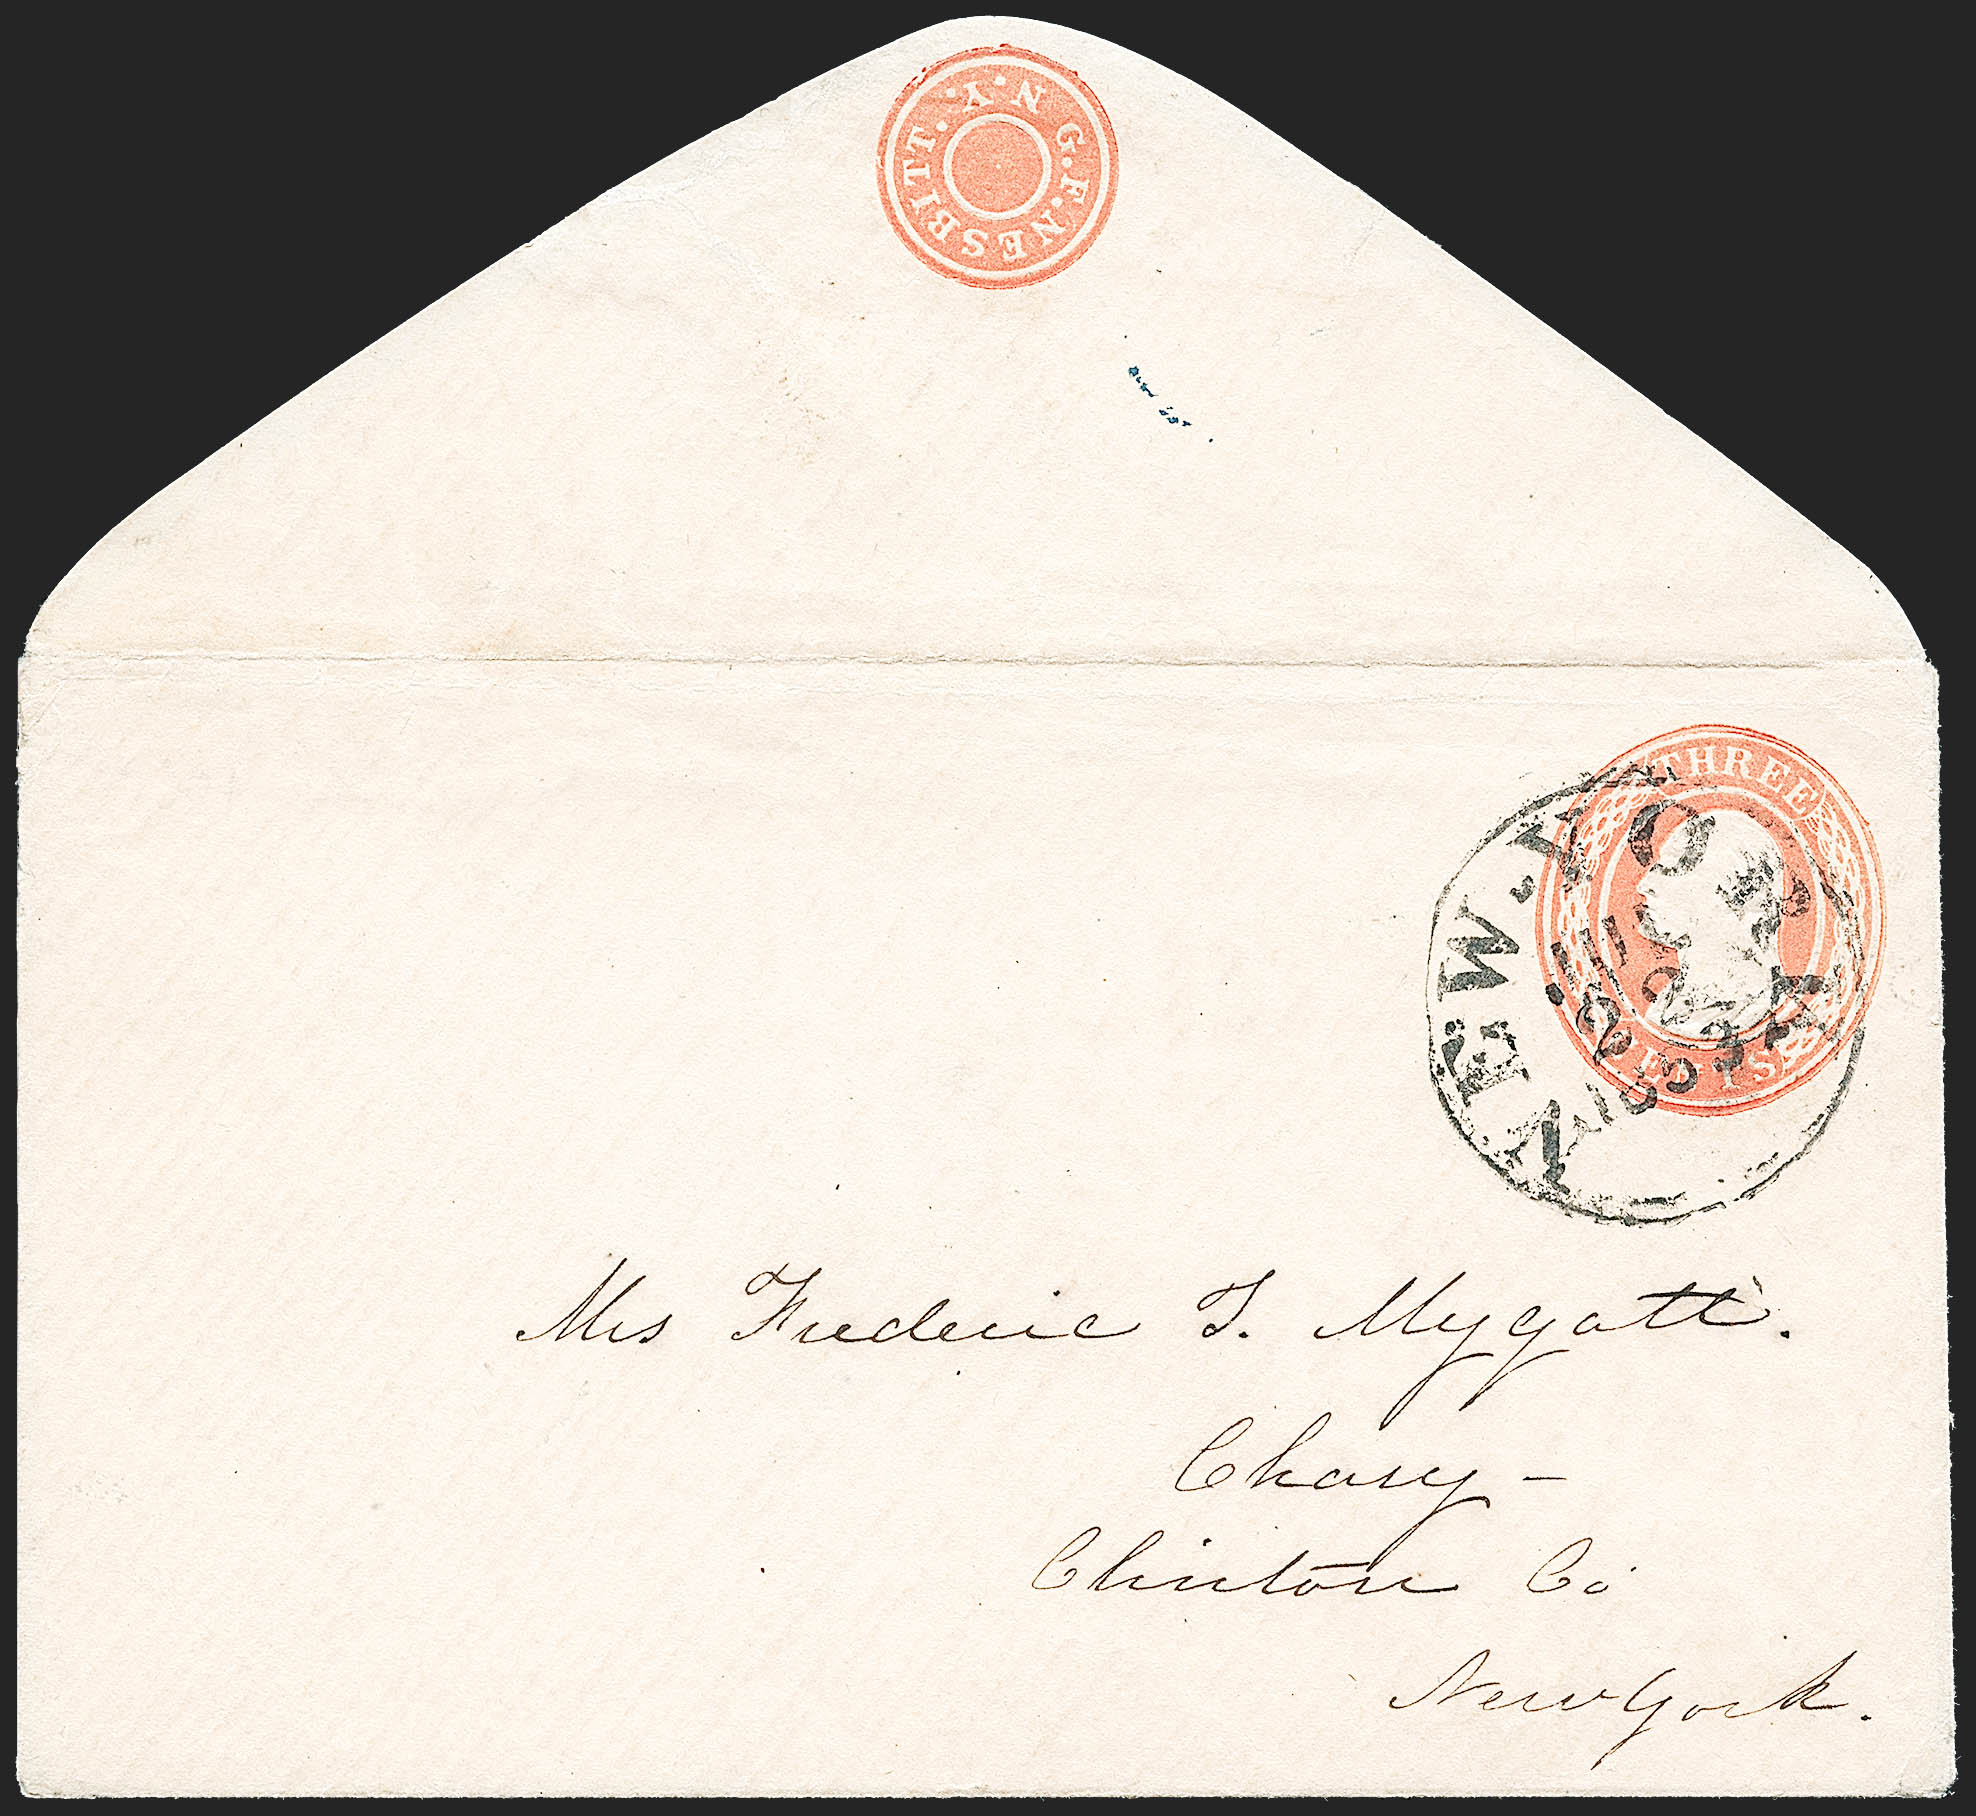 G.F.NESBITT. N.Y.
THREE
CENTS
NEW-YORK
Mrs Frederic T. Mygatt.
Chazy-
Clinton Co
New York.